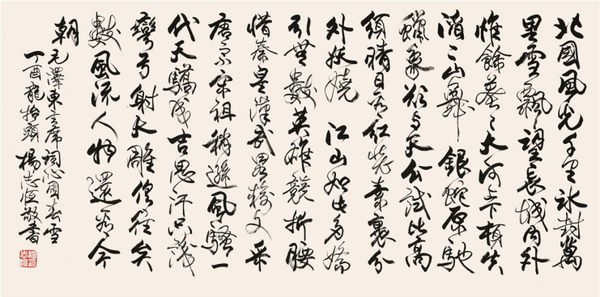 北國風光千里冰封萬
里雪飄望長城内外
惟餘莽莽大河上下頓失
滔滔山舞銀蛇原馳
蠟象欲與天公試比高
須晴日看紅裝素裹分
外妖嬈江山如此多嬌
引無數英雄競折腰
惜秦皇漢武略輸文采
唐宗宋祖稍遜風騷一
代天驕成吉思汗只識
彎弓射大雕俱往矣
數風流人物還看今
朝毛澤東主席詞沁園春雪
丁酉龍抬頭楊志恒敬書